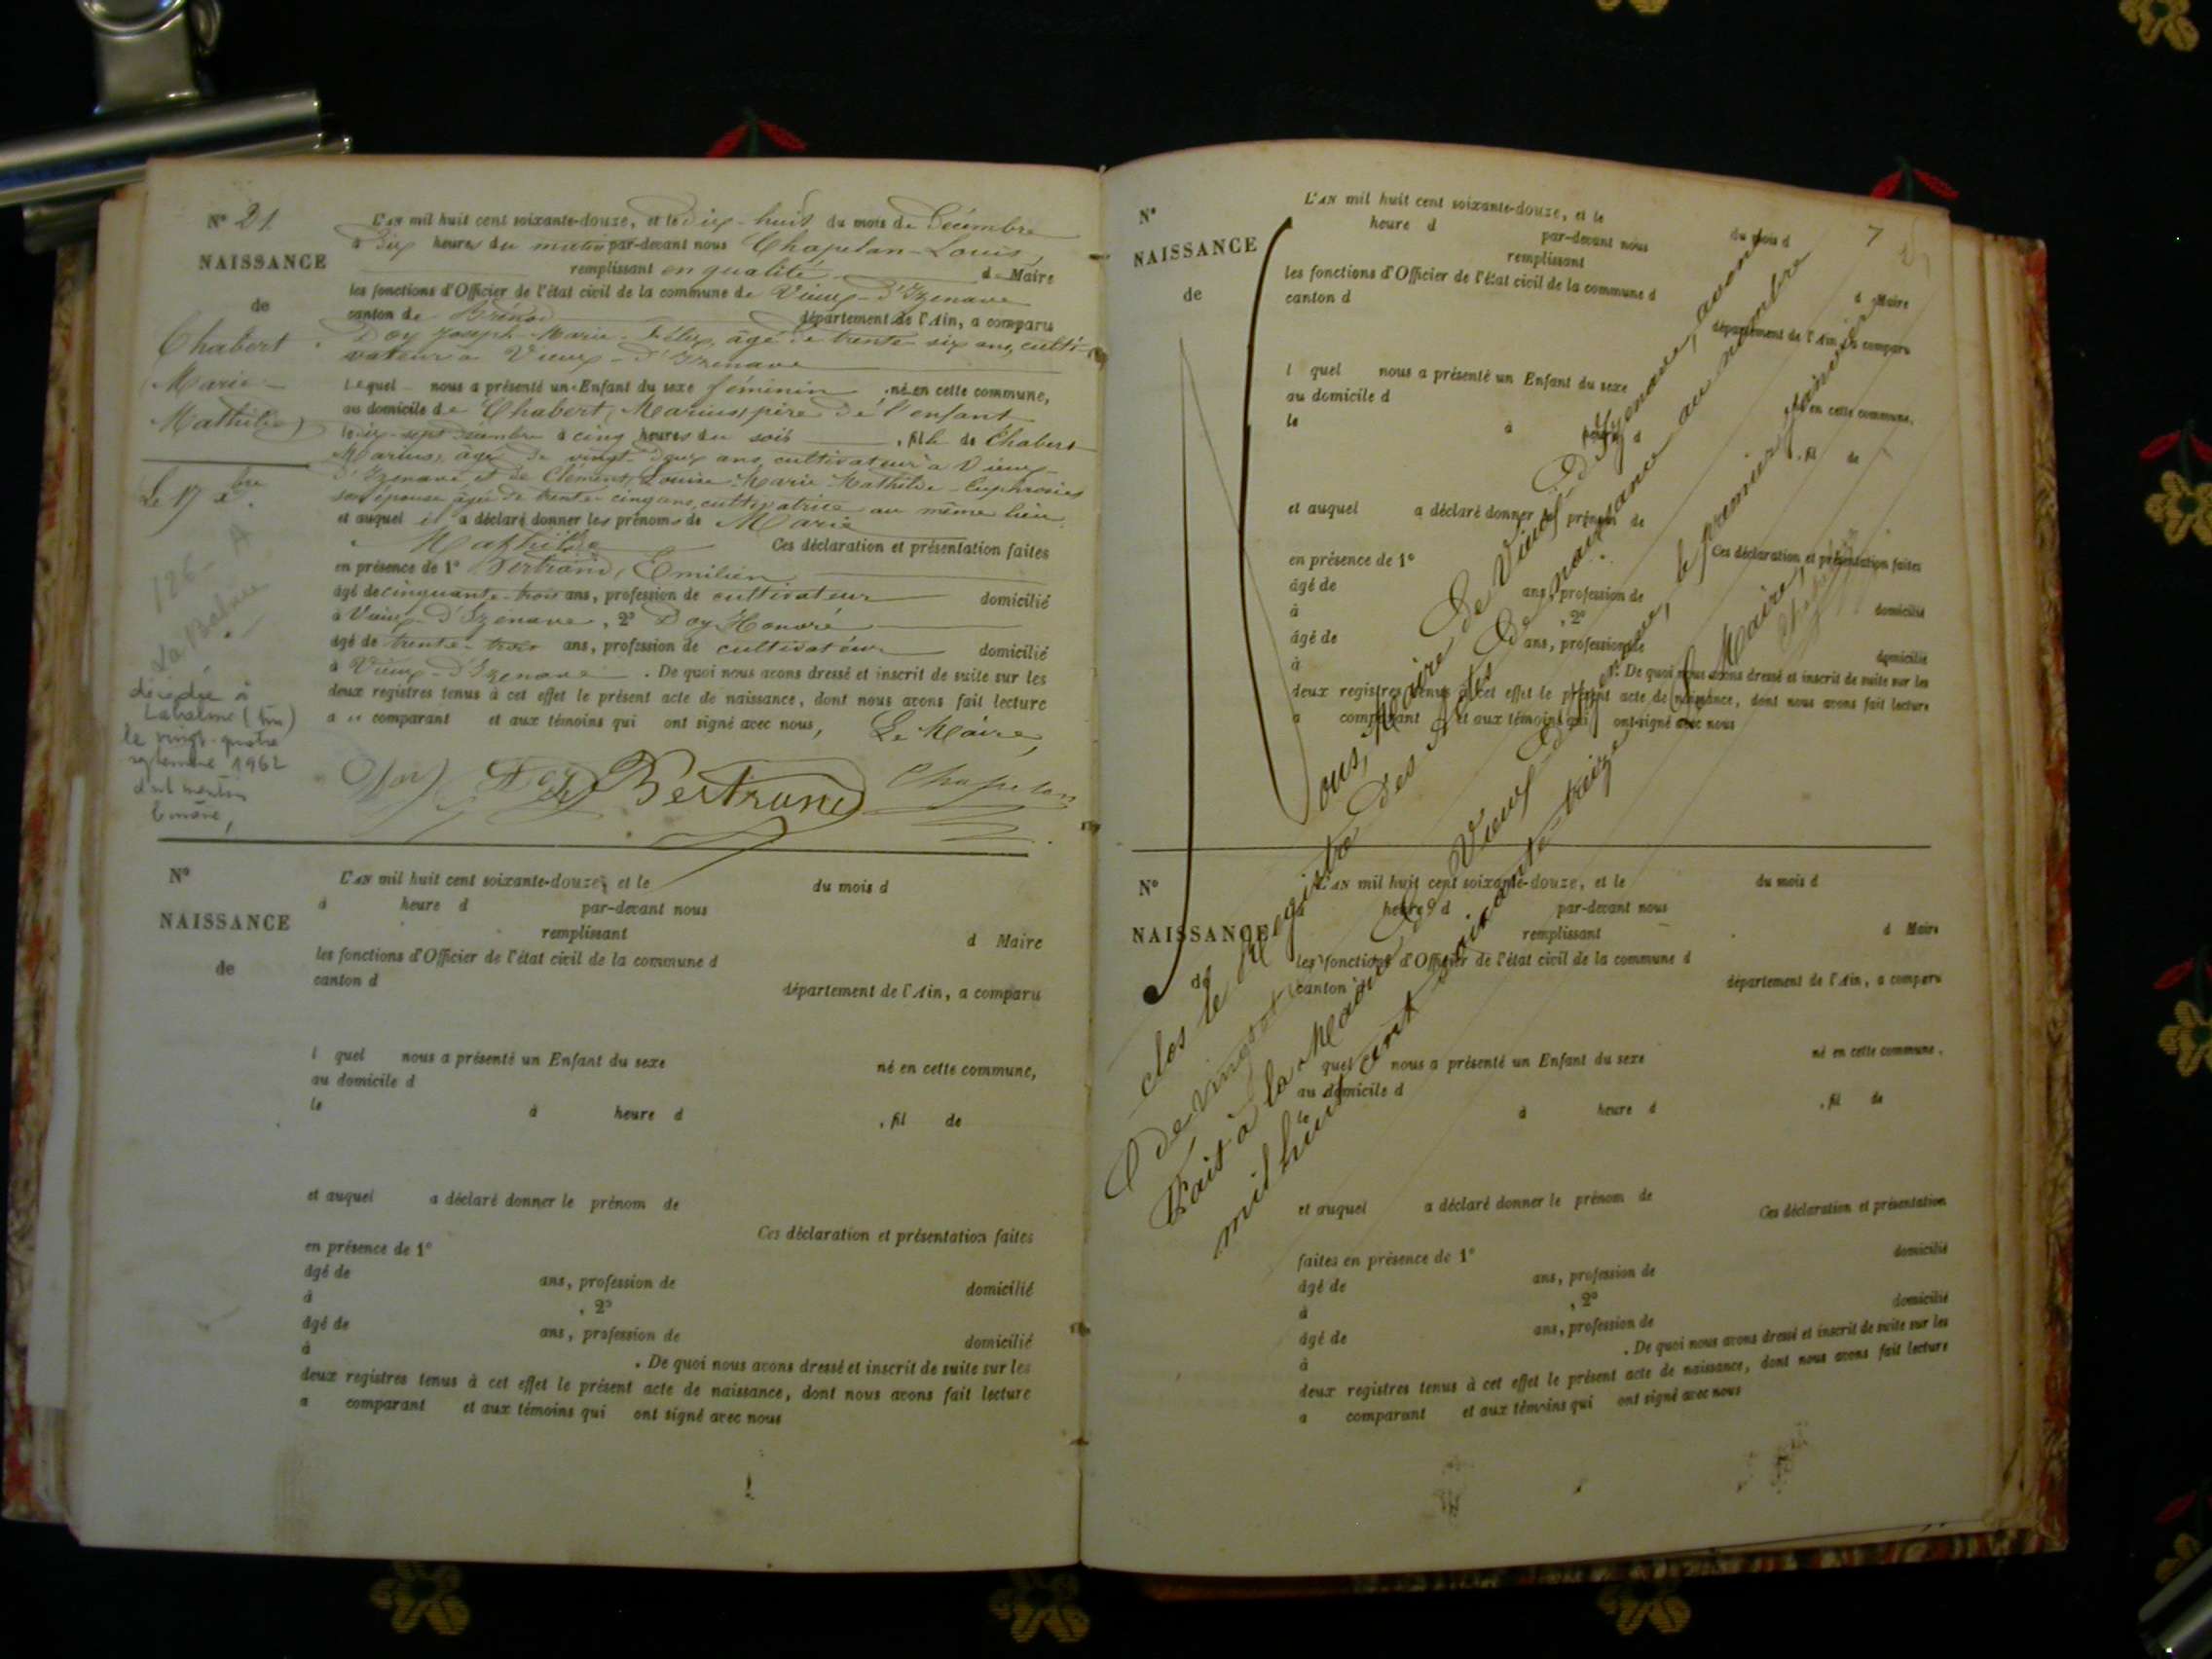 N° 21
NAISSANCE
de
Chabert
Marie
Mathilde
Le 17 Xbre.
126 - A
La Balme
décédée à
Labalme (Ain)
le vingt-quatre
septembre 1962
dont mention
L'AN mil huit cent soixante-douze, et le dix-huit du mois de Décembre
à dix heures du matin par-devant nous Chapelan Louis,
remplissant en qualité de Maire
les fonctions d'Officier de l'état civil de la commune de Vieux-d'Izenave
canton de Brénod département de l'Ain, a comparu
Doy Joseph-Marie-Félix, âgé de trente six ans, culti-
vateur à Vieux-d'Izenave
lequel nous a présenté un Enfant du sexe féminin, né en cette commune,
au domicile de Chabert, Marius, père de l'enfant
le dix-sept Décembre à cinq heures du soir, fille de Chabert
Marius, âgé de vingt-deux ans, cultivateur à Vieux-
d'Izenave et de Clément, Louise-Marie-Mathilde-Euphrosine
son épouse âgée de trente-cinq ans, cultivatrice au même lieu.
et auquel il a déclaré donner les prénoms de Marie
Mathilde Ces déclaration et présentation faites
en présence de 1° Bertrand, Emilien
âgé de cinquante-trois ans, profession de cultivateur domicilié
à Vieux-d'Izenave, 2° Doy Honoré
âgé de trente-trois ans, profession de cultivateur domicilié
à Vieux-d'Izenave. De quoi nous avons dressé et inscrit de suite sur les
deux registres tenus à cet effet le présent acte de naissance, dont nous avons fait lecture
a comparant et aux témoins qui ont signé avec nous, Le Maire,
Doy Bertrand Chapelan
N°
NAISSANCE
de
L'AN mil huit cent soixante-douze, et le du mois d
à heure d par-devant nous
remplissant d Maire
les fonctions d'Officier de l'état civil de la commune d
canton d département de l'Ain, a comparu
l quel nous a présenté un Enfant du sexe né en cette commune,
au domicile d
le à heure d , fil de
et auquel a déclaré donner le prénom de
Ces déclaration et présentation faites
en présence de 1°
âgé de ans, profession de domicilié
à , 2°
âgé de ans, profession de domicilié
à . De quoi nous avons dressé et inscrit de suite sur les
deux registres tenus à cet effet le présent acte de naissance, dont nous avons fait lecture
a comparant et aux témoins qui ont signé avec nous
7
N°
NAISSANCE
de
L'AN mil huit cent soixante-douze, et le du mois d
heure d par-devant nous
remplissant d Maire
les fonctions d'Officier de l'état civil de la commune d
canton d département de l'Ain, a comparu
l quel nous a présenté un Enfant du sexe né en cette commune,
au domicile d
le à heure d , fil de
et auquel a déclaré donner le prénom de
Ces déclaration et présentation faites
en présence de 1°
âgé de ans, profession de domicilié
à , 2°
âgé de ans, profession de domicilié
à . De quoi nous avons dressé et inscrit de suite sur les
deux registres tenus à cet effet le présent acte de naissance, dont nous avons fait lecture
a comparant et aux témoins qui ont signé avec nous
Nous, Maire de Vieux-d'Izenave, avons
clos le Registre des Actes de naissance au nombre
de vingt-et-
Fait à la Mairie de Vieux d'Izenave, le premier janvier
mil huit cent soixante-treize
Le Maire,
Chapelan
N°
NAISSANCE
de
L'AN mil huit cent soixante-douze, et le du mois d
à heure d par-devant nous
remplissant d Maire
les fonctions d'Officier de l'état civil de la commune d
canton d département de l'Ain, a comparu
quel nous a présenté un Enfant du sexe né en cette commune,
au domicile d
le à heure d , fil de
et auquel a déclaré donner le prénom de
Ces déclaration et présentation
faites en présence de 1° domicilié
âgé de ans, profession de
à , 2° domicilié
âgé de ans, profession de
à . De quoi nous avons dressé et inscrit de suite sur les
deux registres tenus à cet effet le présent acte de naissance, dont nous avons fait lecture
a comparant et aux témoins qui ont signé avec nous